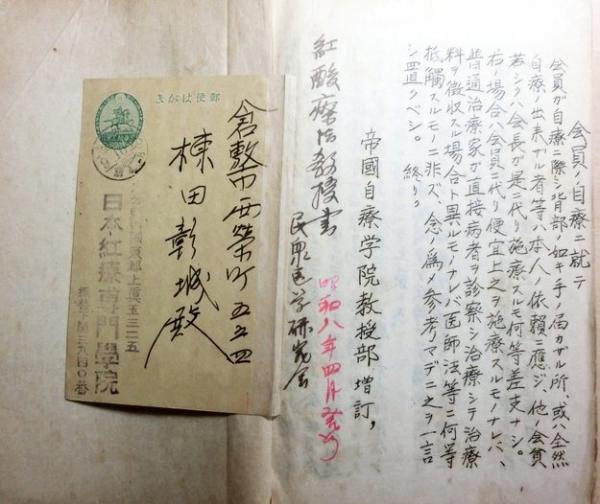 会員ハ自療ニ就テ
会員ガ自療ニ際シ背部ノ如キ手ノ届カザル所、或ハ全然
自療ノ出来ザル者等ハ本人ノ依頼ニ應ジ、他ノ会員
若シクハ会長ガ是ニ代リ施療スルモ何等差支ナシ。
右ノ場合ハ会員ニ代リ便宜上之ヲ施療スルモノナレバ、
普通治療家ガ直接病者ヲ診察シ治療シテ治療
料ヲ徴収スル場合ト異ルモノナレバ医師法等ニ何等
抵觸スルモノニ非ズ、念ノ為メ参考マデニ之ヲ一言
シ置クベシ。 終り
帝國自療学院教授部增訂,
紅酸療法教授書
昭和八年四月
民衆医学研究会
郵便はがき
倉敷市西榮町五五四
棟田彰城殿
上真玉三二五
日本紅療専門學院